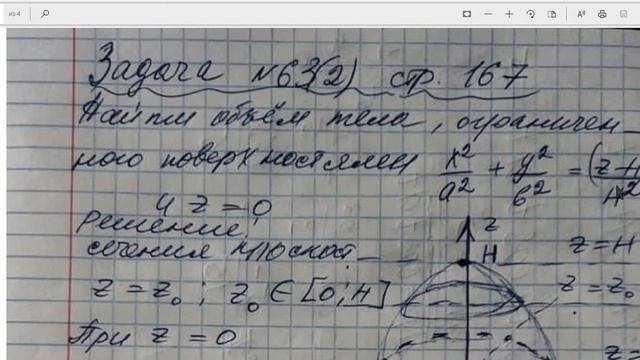 из 4
Задача №63(2) стр. 167
Найти объём тела, ограничен
ного поверхностями x²/a² + y²/b² = (z-H
H²
и z = 0
Решение
z
сечения плоскост
H
z = H
z = z₀ ; z₀ ∈ [0; H]
z = z₀
При z = 0
z =